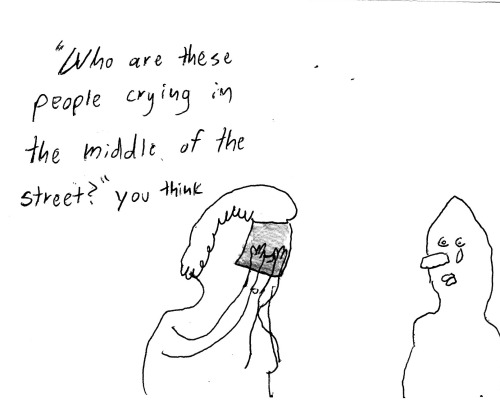 "Who are these
people crying in
the middle of the
street?" you think